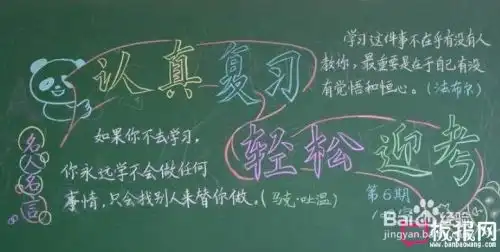 认真复习
轻松迎考
学习这件事不在乎有没有人
教你，最重要是在于自己有没
有觉悟和恒心。(法布尔)
名人名言
如果你不去学习，
你永远学不会做任何
事情，只会找别人来替你做。(马克·吐温)
第6期
Baidu经验
jingyan.baidu.com
板报网
www.banbaowang.com